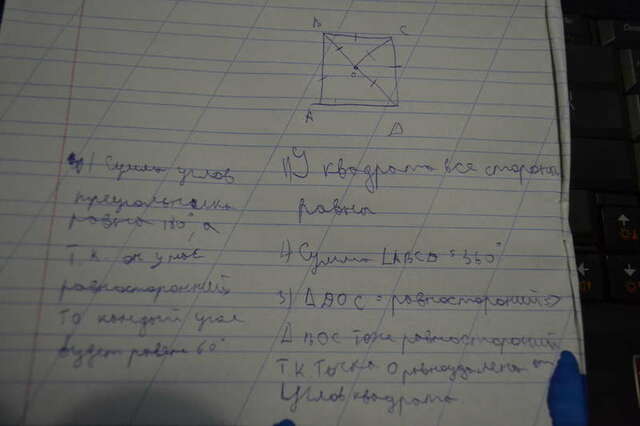 B
C
O
A
D
1) У квадрата все стороны
равны
2) Сумма ∠ABCD = 360°
3) Δ DOC = равносторонний =>
Δ BOC тоже равносторонний
Т К Точка О равноудалена от
Углов квадрата
4) Сумма углов
треугольника
равна 180°, а
Т.К. он у нас
равносторонний
То каждый угол
будет равен 60°